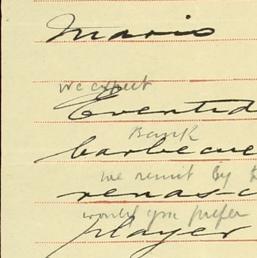 Maris
we expect
Eventid
Bank
barbecue
we remit by
renasc
would you prefer
player